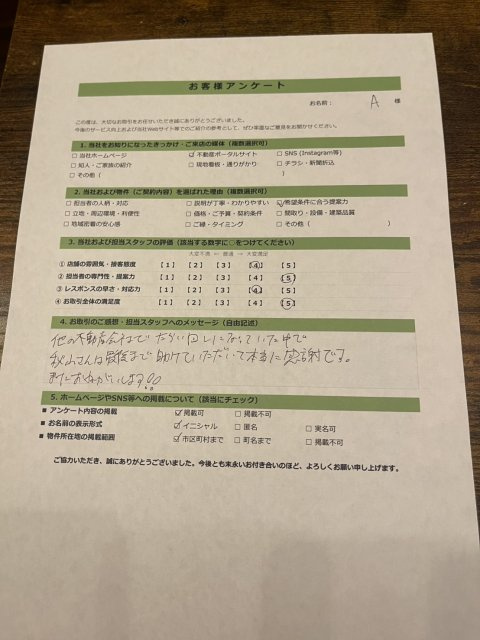 お客様アンケート
お名前： A 様
この度は、大切なお取引をお任せいただき誠にありがとうございました。
今後のサービス向上および当社Webサイト等でのご紹介の参考として、ぜひ率直なご意見をお聞かせください。
1. 当社をお知りになったきっかけ・ご来店の媒体（複数選択可）
□ 当社ホームページ ☑ 不動産ポータルサイト □ SNS (Instagram等)
□ 知人・ご家族の紹介 □ 現地看板・通りがかり □ チラシ・新聞折込
□ その他（ ）
2. 当社および物件（ご契約内容）を選ばれた理由（複数選択可）
□ 担当者の人柄・対応 □ 説明が丁寧・わかりやすい ☑ 希望条件に合う提案力
□ 立地・周辺環境・利便性 □ 価格・ご予算・契約条件 □ 間取り・設備・建築品質
□ 地域密着の安心感 □ ご縁・タイミング □ その他（ ）
3. 当社および担当スタッフの評価（該当する数字に○をつけてください）
大変不満 ← 普通 → 大変満足
① 店舗の雰囲気・接客態度 【1】 【2】 【3】 【4】 【5】
② 担当者の専門性・提案力 【1】 【2】 【3】 【4】 【5】
③ レスポンスの早さ・対応力 【1】 【2】 【3】 【4】 【5】
④ お取引全体の満足度 【1】 【2】 【3】 【4】 【5】
4. お取引のご感想・担当スタッフへのメッセージ（自由記述）
他の不動産会社まで たらい回しになっていた中で
秋山さんは最後まで助けていただいて本当に感謝です。
またおねがいします!!
5. ホームページやSNS等への掲載について（該当にチェック）
■ アンケート内容の掲載 ☑ 掲載可 □ 掲載不可
■ お名前の表示形式 ☑ イニシャル □ 匿名 □ 実名可
■ 物件所在地の掲載範囲 ☑ 市区町村まで □ 町名まで □ 掲載不可
ご協力いただき、誠にありがとうございました。今後とも末永いお付き合いのほど、よろしくお願い申し上げます。